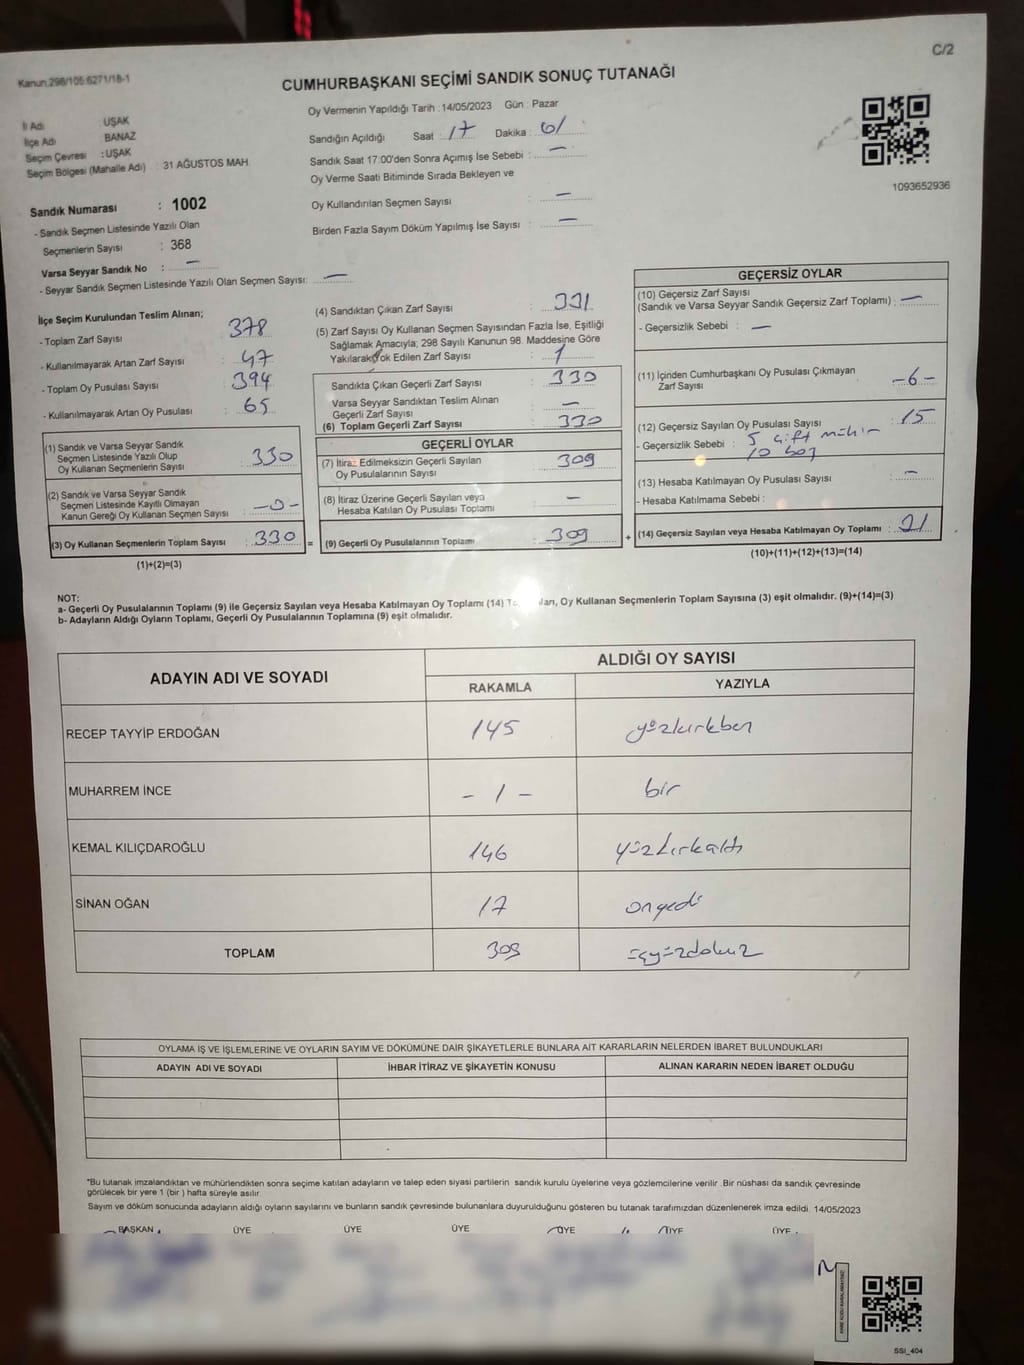 C/2
Kanun:298/105 6271/18-1
CUMHURBAŞKANI SEÇİMİ SANDIK SONUÇ TUTANAĞI
İl Adı UŞAK
İlçe Adı BANAZ
Seçim Çevresi : UŞAK
Seçim Bölgesi (Mahalle Adı) : 31 AĞUSTOS MAH.
Sandık Numarası : 1002
- Sandık Seçmen Listesinde Yazılı Olan
Seçmenlerin Sayısı : 368
Varsa Seyyar Sandık No : —
- Seyyar Sandık Seçmen Listesinde Yazılı Olan Seçmen Sayısı: —
Oy Vermenin Yapıldığı Tarih : 14/05/2023 Gün : Pazar
Sandığın Açıldığı Saat : 17 Dakika : 01
Sandık Saat 17:00'den Sonra Açımış İse Sebebi : —
Oy Verme Saati Bitiminde Sırada Bekleyen ve
Oy Kullandırılan Seçmen Sayısı : —
Birden Fazla Sayım Döküm Yapılmış İse Sayısı : —
1093652936
İlçe Seçim Kurulundan Teslim Alınan;
- Toplam Zarf Sayısı : 378
- Kullanılmayarak Artan Zarf Sayısı : 47
- Toplam Oy Pusulası Sayısı : 394
- Kullanılmayarak Artan Oy Pusulası : 65
(1) Sandık ve Varsa Seyyar Sandık
Seçmen Listesinde Yazılı Olup
Oy Kullanan Seçmenlerin Sayısı : 330
(2) Sandık ve Varsa Seyyar Sandık
Seçmen Listesinde Kayıtlı Olmayan
Kanun Gereği Oy Kullanan Seçmen Sayısı : -0-
(3) Oy Kullanan Seçmenlerin Toplam Sayısı : 330 =
(1)+(2)=(3)
(4) Sandıktan Çıkan Zarf Sayısı : 331
(5) Zarf Sayısı Oy Kullanan Seçmen Sayısından Fazla İse, Eşitliği
Sağlamak Amacıyla; 298 Sayılı Kanunun 98. Maddesine Göre
Yakılarak Yok Edilen Zarf Sayısı : 1
Sandıkta Çıkan Geçerli Zarf Sayısı : 330
Varsa Seyyar Sandıktan Teslim Alınan
Geçerli Zarf Sayısı : —
(6) Toplam Geçerli Zarf Sayısı : 330
GEÇERLİ OYLAR
(7) İtiraz Edilmeksizin Geçerli Sayılan
Oy Pusulalarının Sayısı : 309
(8) İtiraz Üzerine Geçerli Sayılan veya
Hesaba Katılan Oy Pusulası Toplamı : —
(9) Geçerli Oy Pusulalarının Toplamı : 309 +
GEÇERSİZ OYLAR
(10) Geçersiz Zarf Sayısı
(Sandık ve Varsa Seyyar Sandık Geçersiz Zarf Toplamı) : —
- Geçersizlik Sebebi : —
(11) İçinden Cumhurbaşkanı Oy Pusulası Çıkmayan
Zarf Sayısı : -6-
(12) Geçersiz Sayılan Oy Pusulası Sayısı : 15
- Geçersizlik Sebebi : 5 çift mühür
10 boş
(13) Hesaba Katılmayan Oy Pusulası Sayısı : —
- Hesaba Katılmama Sebebi :
(14) Geçersiz Sayılan veya Hesaba Katılmayan Oy Toplamı : 21
(10)+(11)+(12)+(13)=(14)
NOT:
a- Geçerli Oy Pusulalarının Toplamı (9) ile Geçersiz Sayılan veya Hesaba Katılmayan Oy Toplamı (14) Oy Kullanan Seçmenlerin Toplam Sayısına (3) eşit olmalıdır. (9)+(14)=(3)
b- Adayların Aldığı Oyların Toplamı, Geçerli Oy Pusulalarının Toplamına (9) eşit olmalıdır.
ADAYIN ADI VE SOYADI ALDIĞI OY SAYISI
RAKAMLA YAZIYLA
RECEP TAYYİP ERDOĞAN 145 yüzkırkbeş
MUHARREM İNCE - 1 - bir
KEMAL KILIÇDAROĞLU 146 yüzkırkaltı
SİNAN OĞAN 17 onyedi
TOPLAM 309 üçyüzdokuz
OYLAMA İŞ VE İŞLEMLERİNE VE OYLARIN SAYIM VE DÖKÜMÜNE DAİR ŞİKAYETLERLE BUNLARA AİT KARARLARIN NELERDEN İBARET BULUNDUKLARI
ADAYIN ADI VE SOYADI İHBAR İTİRAZ VE ŞİKAYETİN KONUSU ALINAN KARARIN NEDEN İBARET OLDUĞU
"Bu tutanak imzalandıktan ve mühürlendikten sonra seçime katılan adayların ve talep eden siyasi partilerin sandık kurulu üyelerine veya gözlemcilerine verilir. Bir nüshası da sandık çevresinde
görülecek bir yere 1 (bir ) hafta süreyle asılır.
Sayım ve döküm sonucunda adayların aldığı oyların sayılarını ve bunların sandık çevresinde bulunanlara duyurulduğunu gösteren bu tutanak tarafımızdan düzenlenerek imza edildi. 14/05/2023
BAŞKAN ÜYE ÜYE ÜYE ÜYE ÜYE ÜYE
SSİ_404